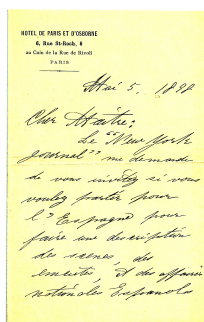 HOTEL DE PARIS ET D'OSBORNE
6, Rue St-Roch, 6
au Coin de la Rue de Rivoli
PARIS
Mai 5, 1898
Cher Maître:
Le "New York
Journal" me demande
de vous invitez si vous
voulez partir pour
l'Espagne pour
faire une description
des scenes, des
emeutes, et des affaires
nationales Espanola